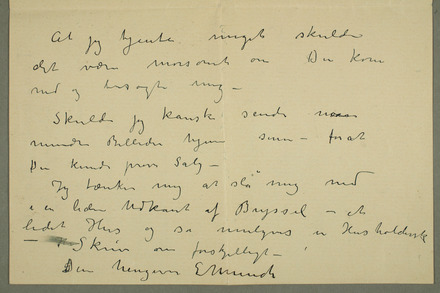 At jeg tjente meget skulde
det være morsomt om Du kom
ned og besøgte mig –
Skulde jeg kanske sende
mindre Billeder hjem – forat
Du kunde prøve Salg –
Jeg tænker mig at slå mig ned
i en liden Udkant af Bryssel – et
lidet Hus og så muligens en Husholderske
– Skriv om forskjelligt –
Din hengivne E Munch